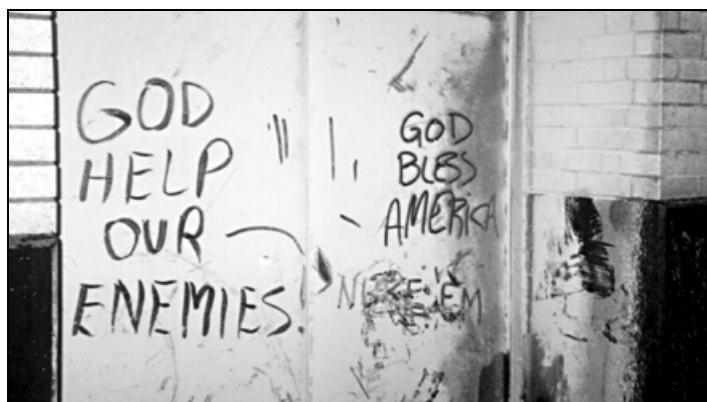 GOD
HELP
OUR
ENEMIES.
GOD
BLESS
AMERICA
NUKE EM